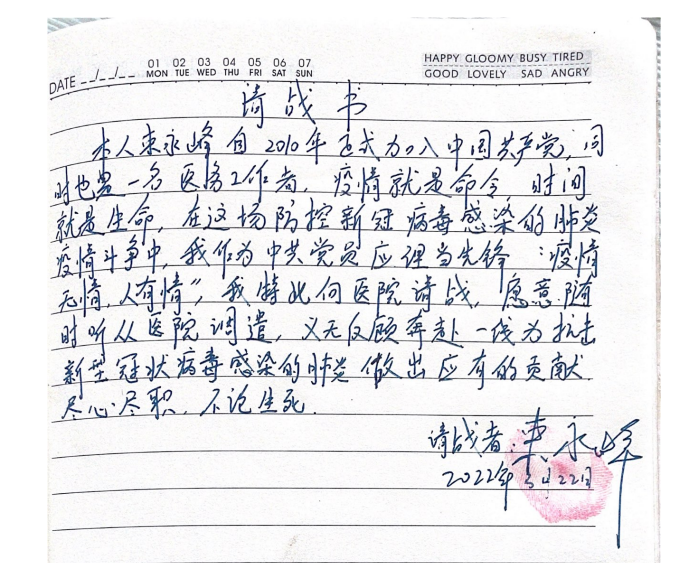 HAPPY GLOOMY BUSY TIRED
GOOD LOVELY SAD ANGRY
DATE _/_/_ 01 02 03 04 05 06 07
MON TUE WED THU FRI SAT SUN
请战书
本人束永峰自2010年正式加入中国共产党,同
时也是一名医务工作者,疫情就是命令 时间
就是生命,在这场防控新冠病毒感染的肺炎
疫情斗争中,我作为中共党员应理当先锋:疫情
无情,人有情”,我特此向医院请战,愿意随
时听从医院调遣,义无反顾奔赴一线为抗击
新型冠状病毒感染的肺炎做出应有的贡献.
尽心尽职,不论生死.
请战者:束永峰
2022年3月22日